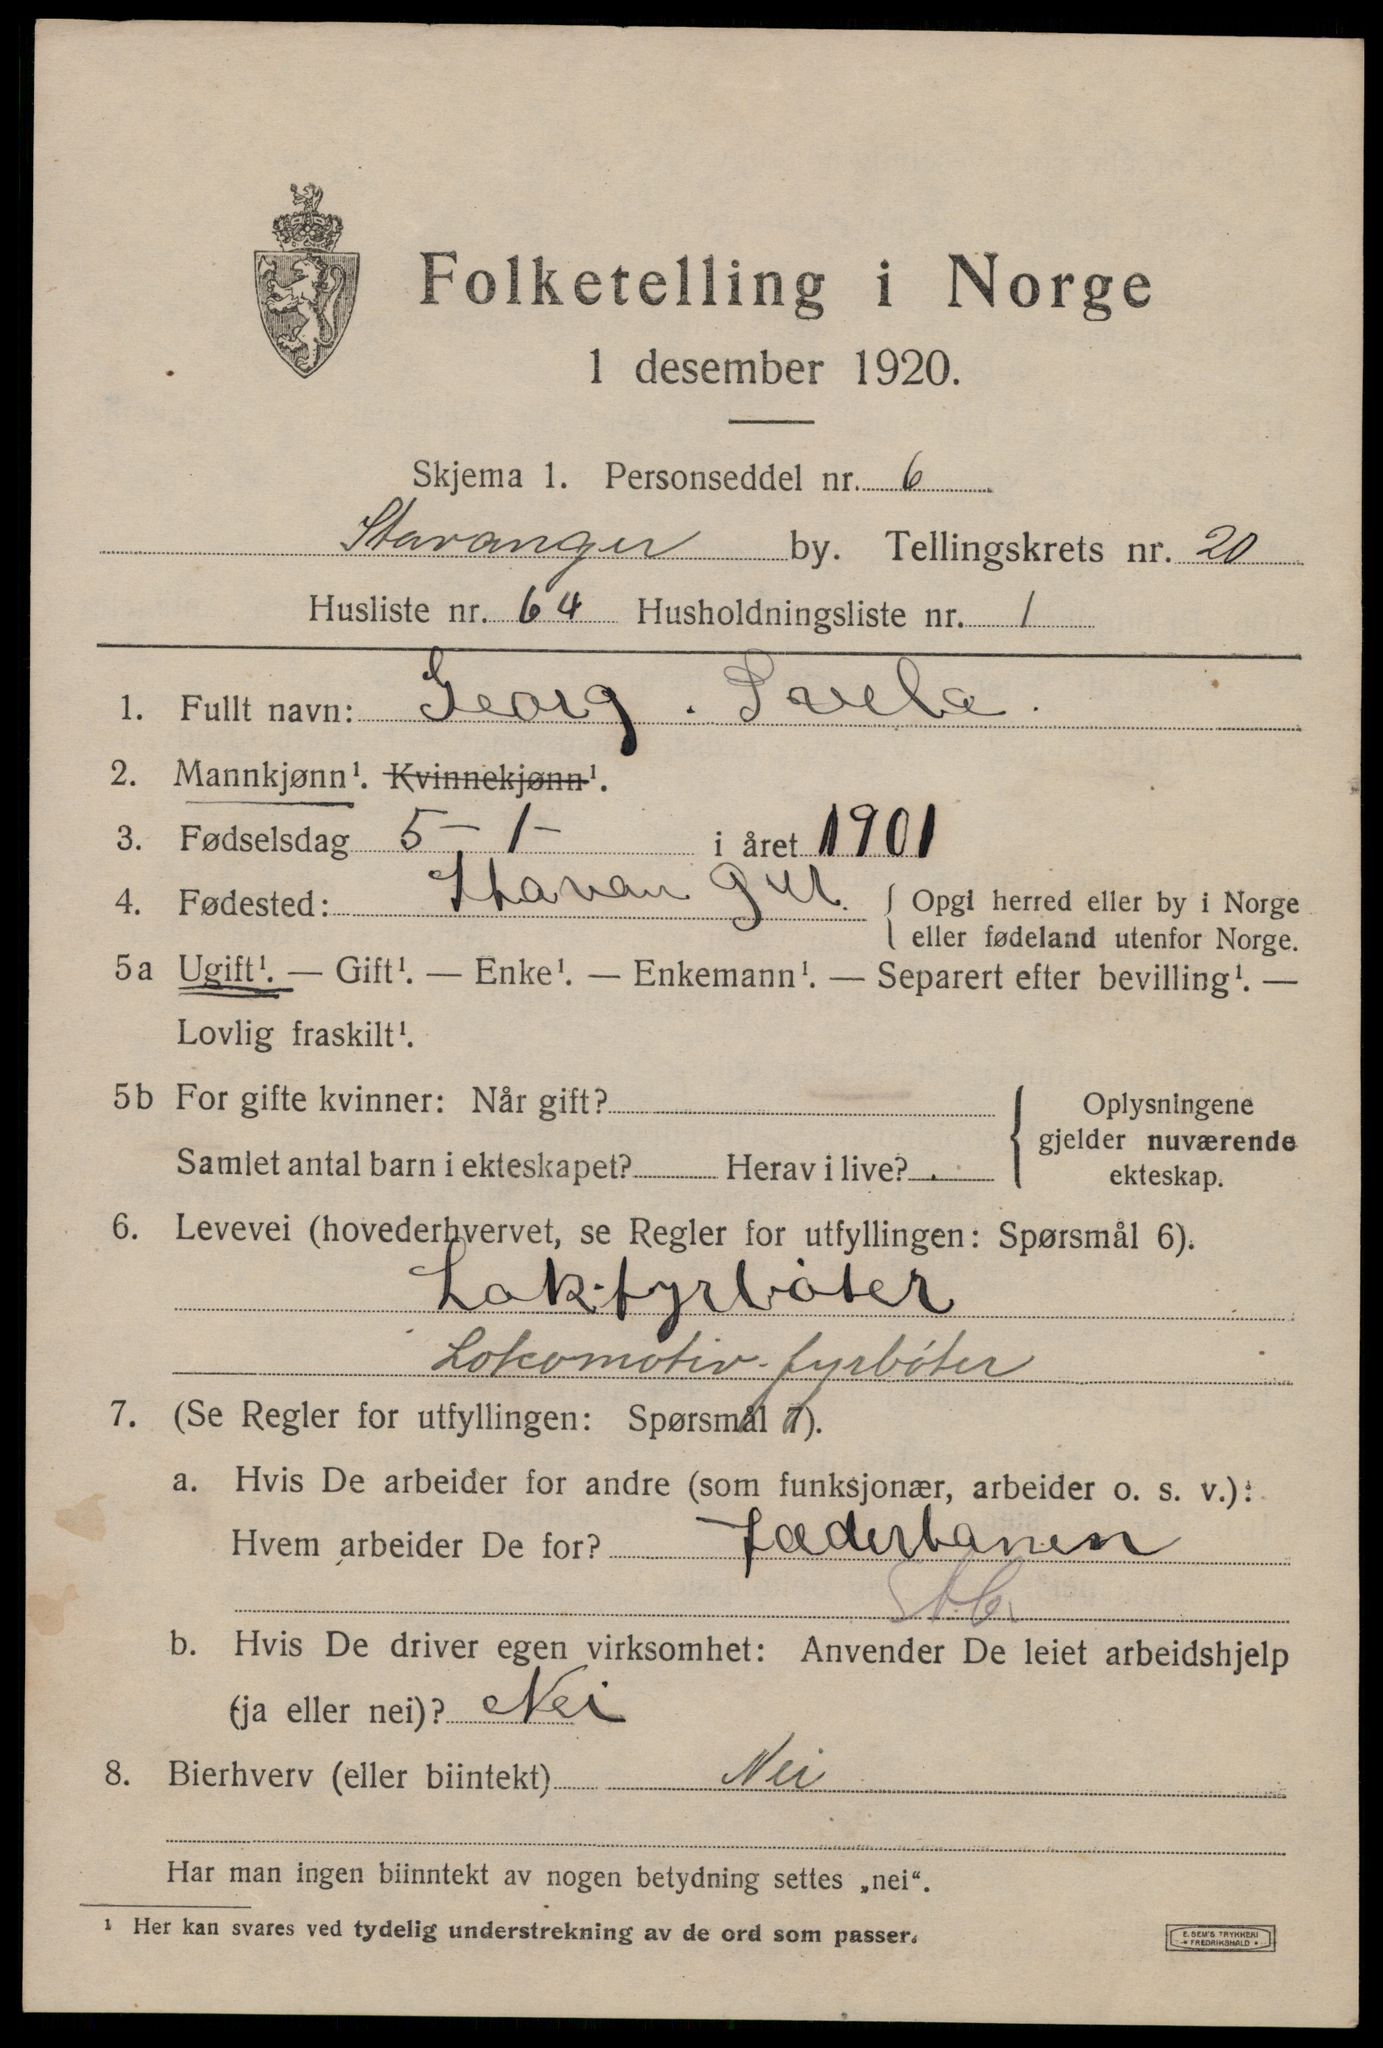 Folketelling i Norge
1 desember 1920.
Skjema 1. Personseddel nr. 6
Stavanger by. Tellingskrets nr. 20
Husliste nr. 64 Husholdningsliste nr. 1
1. Fullt navn: Georg . Svela .
2. Mannkjønn¹. Kvinnekjønn¹.
3. Fødselsdag 5 - 1 - i året 1901
4. Fødested: Stavanger. { Opgi herred eller by i Norge
eller fødeland utenfor Norge.
5a Ugift¹. — Gift¹. — Enke¹. — Enkemann¹. — Separert efter bevilling¹. —
Lovlig fraskilt¹.
5b For gifte kvinner: Når gift? { Oplysningene
gjelder nuværende
Samlet antal barn i ekteskapet? Herav i live? .
ekteskap.
6. Levevei (hovederhvervet, se Regler for utfyllingen: Spørsmål 6).
Lok.fyrbøter
Lokomotiv-fyrbøter
7. (Se Regler for utfyllingen: Spørsmål 7).
a. Hvis De arbeider for andre (som funksjonær, arbeider o. s. v.):
Hvem arbeider De for? Jæderbanen
b. Hvis De driver egen virksomhet: Anvender De leiet arbeidshjelp
(ja eller nei)? Nei
8. Bierhverv (eller biintekt) Nei
Har man ingen biinntekt av nogen betydning settes „nei".
¹ Her kan svares ved tydelig understrekning av de ord som passer.
E. SEM'S TRYKKERI
* FREDRIKSHALD *